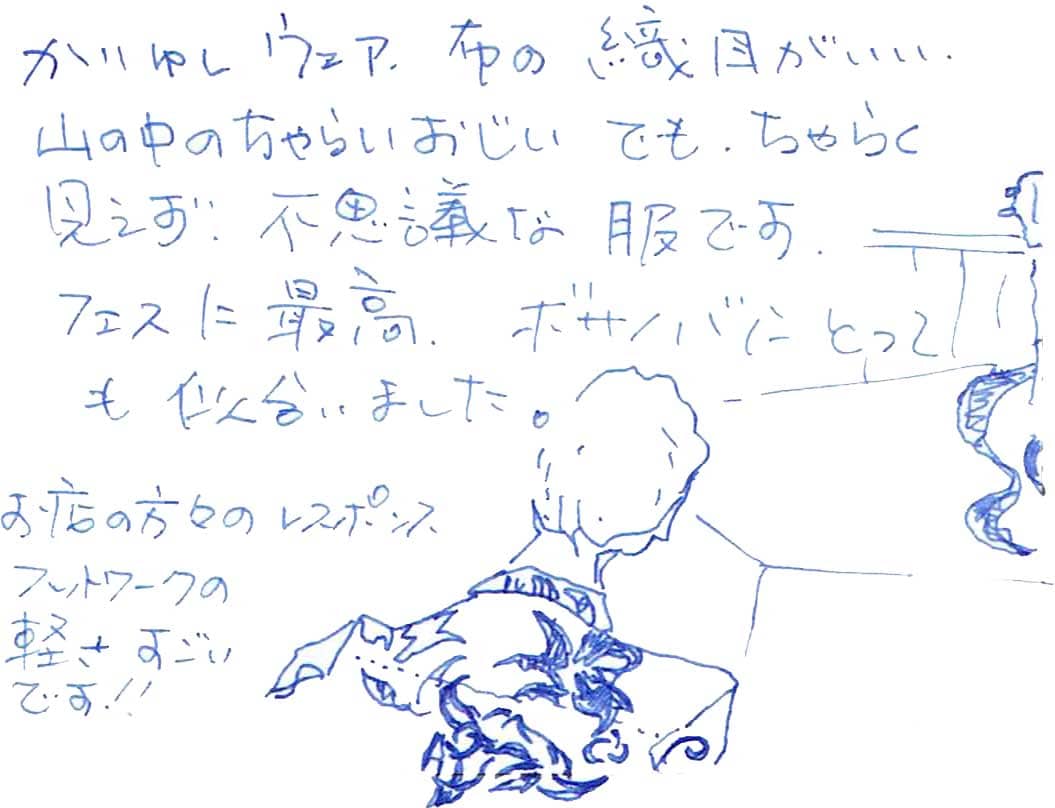 かりゆしウェア. 布の織目がいい.
山の中のちゃらいおじいでも. ちゃらく
見えず. 不思議な服です.
フェスに最高. ボサノバにとって
も似合いました。
お店の方々のレスポンス
フットワークの
軽さすごい
です!!